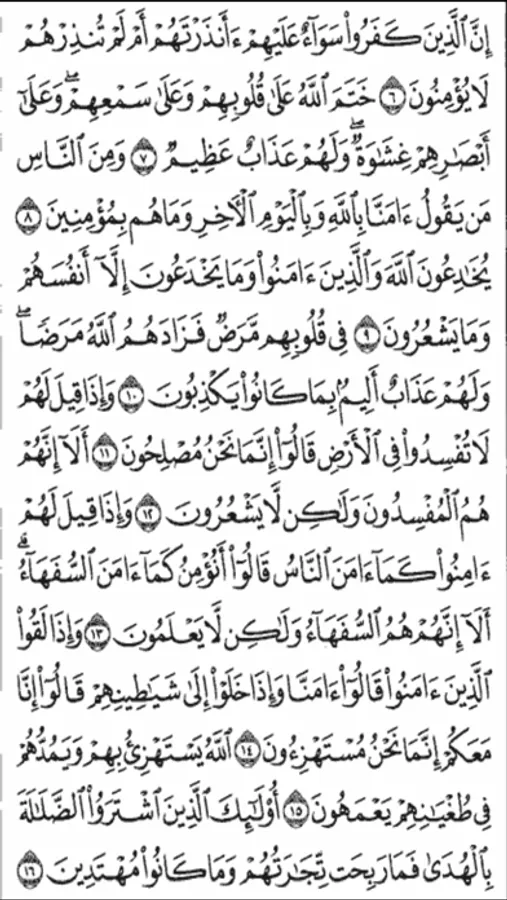 إِنَّ ٱلَّذِينَ كَفَرُوا۟ سَوَآءٌ عَلَيْهِمْ ءَأَنذَرْتَهُمْ أَمْ لَمْ تُنذِرْهُمْ
لَا يُؤْمِنُونَ ٦ خَتَمَ ٱللَّهُ عَلَىٰ قُلُوبِهِمْ وَعَلَىٰ سَمْعِهِمْ ۖ وَعَلَىٰٓ
أَبْصَٰرِهِمْ غِشَٰوَةٌ ۖ وَلَهُمْ عَذَابٌ عَظِيمٌ ٧ وَمِنَ ٱلنَّاسِ
مَن يَقُولُ ءَامَنَّا بِٱللَّهِ وَبِٱلْيَوْمِ ٱلْءَاخِرِ وَمَا هُم بِمُؤْمِنِينَ ٨
يُخَٰدِعُونَ ٱللَّهَ وَٱلَّذِينَ ءَامَنُوا۟ وَمَا يَخْدَعُونَ إِلَّآ أَنفُسَهُمْ
وَمَا يَشْعُرُونَ ٩ فِى قُلُوبِهِم مَّرَضٌ فَزَادَهُمُ ٱللَّهُ مَرَضًا ۖ
وَلَهُمْ عَذَابٌ أَلِيمٌۢ بِمَا كَانُوا۟ يَكْذِبُونَ ١٠ وَإِذَا قِيلَ لَهُمْ
لَا تُفْسِدُوا۟ فِى ٱلْأَرْضِ قَالُوٓا۟ إِنَّمَا نَحْنُ مُصْلِحُونَ ١١ أَلَآ إِنَّهُمْ
هُمُ ٱلْمُفْسِدُونَ وَلَٰكِن لَّا يَشْعُرُونَ ١٢ وَإِذَا قِيلَ لَهُمْ
ءَامِنُوا۟ كَمَآ ءَامَنَ ٱلنَّاسُ قَالُوٓا۟ أَنُؤْمِنُ كَمَآ ءَامَنَ ٱلسُّفَهَآءُ ۗ
أَلَآ إِنَّهُمْ هُمُ ٱلسُّفَهَآءُ وَلَٰكِن لَّا يَعْلَمُونَ ١٣ وَإِذَا لَقُوا۟
ٱلَّذِينَ ءَامَنُوا۟ قَالُوٓا۟ ءَامَنَّا وَإِذَا خَلَوْا۟ إِلَىٰ شَيَٰطِينِهِمْ قَالُوٓا۟ إِنَّا
مَعَكُمْ إِنَّمَا نَحْنُ مُسْتَهْزِءُونَ ١٤ ٱللَّهُ يَسْتَهْزِئُ بِهِمْ وَيَمُدُّهُمْ
فِى طُغْيَٰنِهِمْ يَعْمَهُونَ ١٥ أُو۟لَٰٓئِكَ ٱلَّذِينَ ٱشْتَرَوُا۟ ٱلضَّلَٰلَةَ
بِٱلْهُدَىٰ فَمَا رَبِحَت تِّجَٰرَتُهُمْ وَمَا كَانُوا۟ مُهْتَدِينَ ١٦